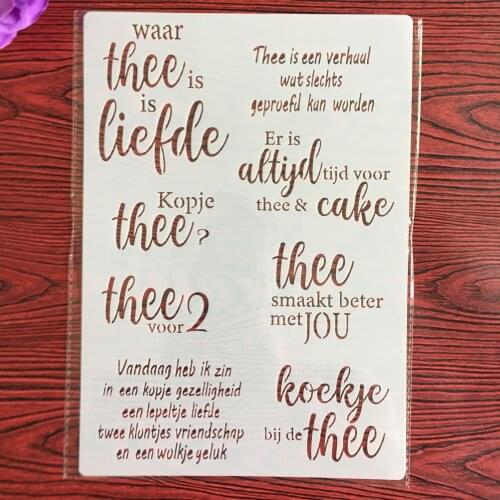 waar
thee is
is
liefde
Thee is een verhaal
wat slechts
geproefd kan worden
Er is
altijd tijd voor
thee & cake
Kopje
thee?
thee
smaakt beter
met JOU
thee
voor 2
Vandaag heb ik zin
in een kopje gezelligheid
een lepeltje liefde
twee klontjes vriendschap
en een wolkje geluk
koekje
bij de thee